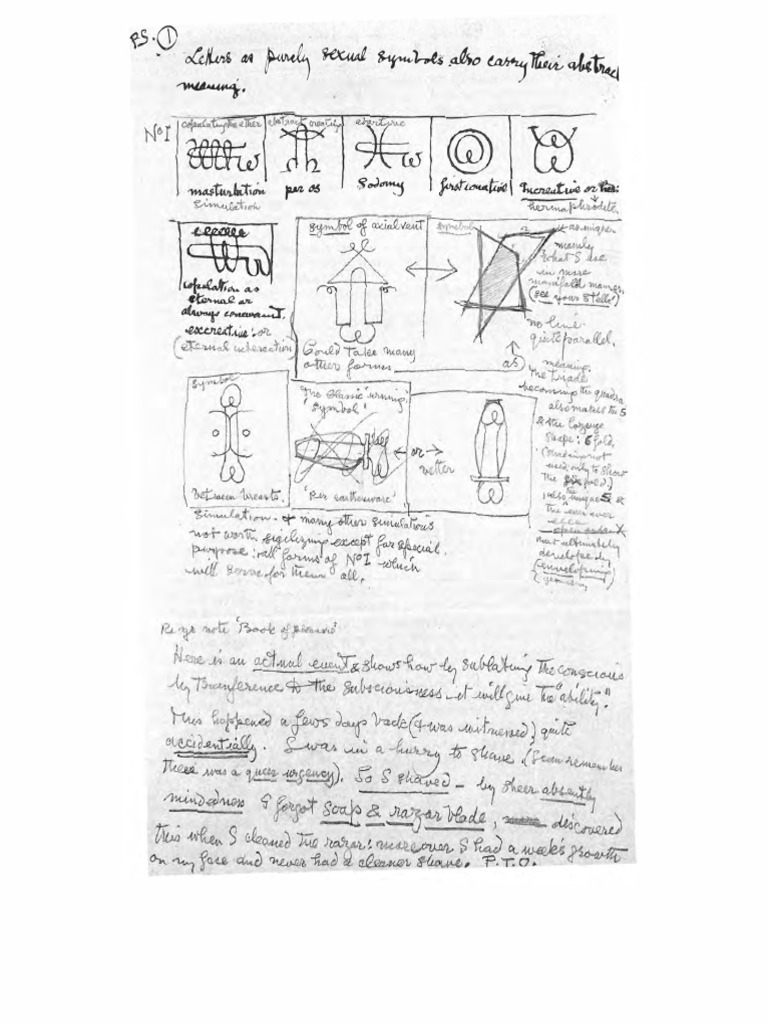 PS. 1
Letters as purely sexual symbols also carry their abstract
meaning.
No I
copulating the ether
abstract creating
masturbation
simulation
per os
Sodomy
first conative
Increative or
hermaphrodite
copulation as
eternal or
always
excreative: or
(eternal
Symbol of axial vent
Could take many
other forms.
Symbol
mainly
what I use
in more
manifold manner
(see your Stele)
no line
quite parallel.
as
meaning.
The triade
becoming the quadra
also makes the 5
& the lozenge
shape: 6 fold
only to show
the six fold)
the unique 5 &
the ever
ultimately
developed.
(enveloping)
Symbol
Between breasts.
'The Classic' urning
Symbol'
'Per earthenware'
or
better
Simulation - & many other simulations
not worth sigilizing except for special
purpose: all forms of No I which
will serve for them all.
Re yr note 'Book of
Here is an actual event & shows how by sublating the conscious
by Tranference to the subsciousness - it will give the "ability."
This happened a few days back (& was witnessed) quite
accidentially. I was in a hurry to shave (I can remember
there was a queer urgency). So I shaved - by sheer absently
mindedness I forgot soap & razar blade, discovered
this when I cleaned the razar: moreover I had a week's growth
on my face and never had a cleaner shave. P.T.O.